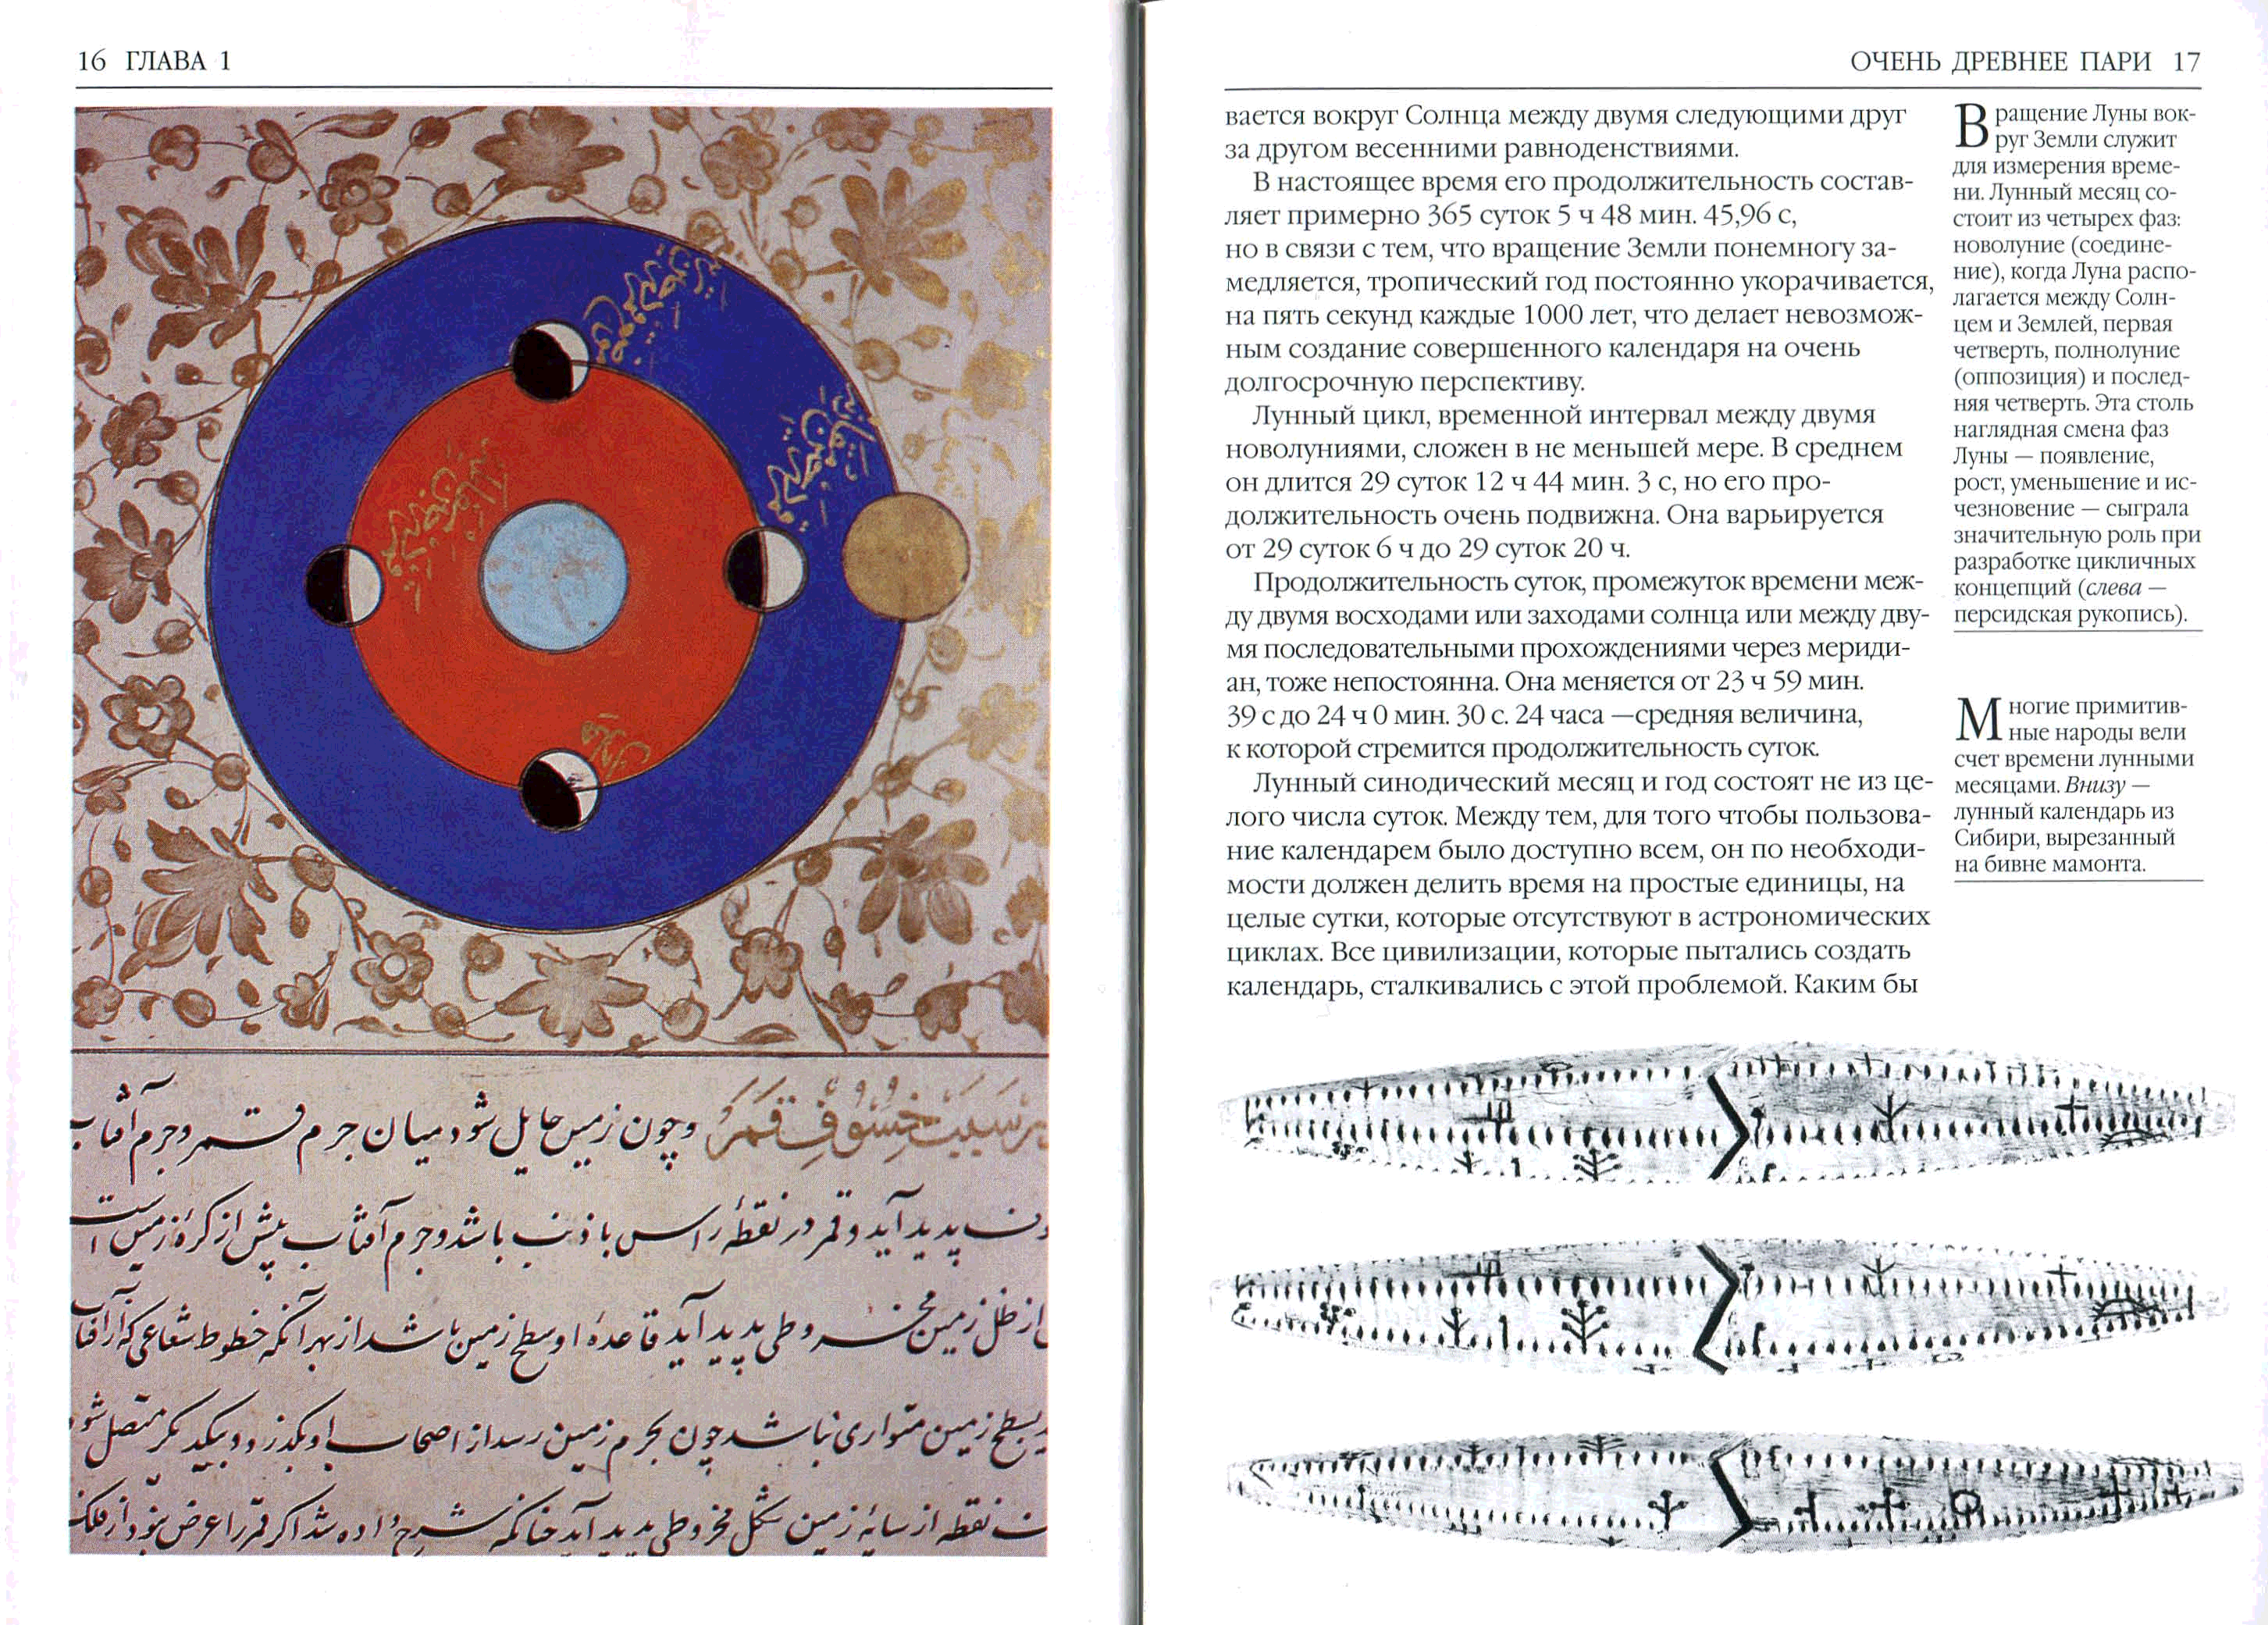 16 ГЛАВА 1
وچون زمین حایل شود میان جرم قمر وجرم آفتاب
پدید آید و قمر در نقطهٔ راس یا ذنب باشد وجرم آفتاب بیش از کرهٔ زمین است
از ظل زمین مخروطی پدید آید قاعدهٔ او سطح زمین باشد از بهر آنکه خطوط شعاعی که از آفتاب
بسطح زمین متواری نباشد چون بجرم زمین رسد از
نقطه از سایهٔ زمین شکل مخروطی پدید آید چنانکه شرح داده شد اکر قمر را عرض نبود از فلک
ОЧЕНЬ ДРЕВНЕЕ ПАРИ 17
вается вокруг Солнца между двумя следующими друг
за другом весенними равноденствиями.
В настоящее время его продолжительность состав-
ляет примерно 365 суток 5 ч 48 мин. 45,96 с,
но в связи с тем, что вращение Земли понемногу за-
медляется, тропический год постоянно укорачивается,
на пять секунд каждые 1000 лет, что делает невозмож-
ным создание совершенного календаря на очень
долгосрочную перспективу.
Лунный цикл, временной интервал между двумя
новолуниями, сложен в не меньшей мере. В среднем
он длится 29 суток 12 ч 44 мин. 3 с, но его про-
должительность очень подвижна. Она варьируется
от 29 суток 6 ч до 29 суток 20 ч.
Продолжительность суток, промежуток времени меж-
ду двумя восходами или заходами солнца или между дву-
мя последовательными прохождениями через мериди-
ан, тоже непостоянна. Она меняется от 23 ч 59 мин.
39 с до 24 ч 0 мин. 30 с. 24 часа —средняя величина,
к которой стремится продолжительность суток.
Лунный синодический месяц и год состоят не из це-
лого числа суток. Между тем, для того чтобы пользова-
ние календарем было доступно всем, он по необходи-
мости должен делить время на простые единицы, на
целые сутки, которые отсутствуют в астрономических
циклах. Все цивилизации, которые пытались создать
календарь, сталкивались с этой проблемой. Каким бы
Вращение Луны вок-
руг Земли служит
для измерения време-
ни. Лунный месяц со-
стоит из четырех фаз:
новолуние (соедине-
ние), когда Луна распо-
лагается между Солн-
цем и Землей, первая
четверть, полнолуние
(оппозиция) и послед-
няя четверть. Эта столь
наглядная смена фаз
Луны — появление,
рост, уменьшение и ис-
чезновение — сыграла
значительную роль при
разработке цикличных
концепций (слева —
персидская рукопись).
Многие примитив-
ные народы вели
счет времени лунными
месяцами. Внизу —
лунный календарь из
Сибири, вырезанный
на бивне мамонта.